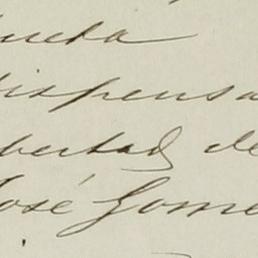 ispensa
bertad de
José Gome